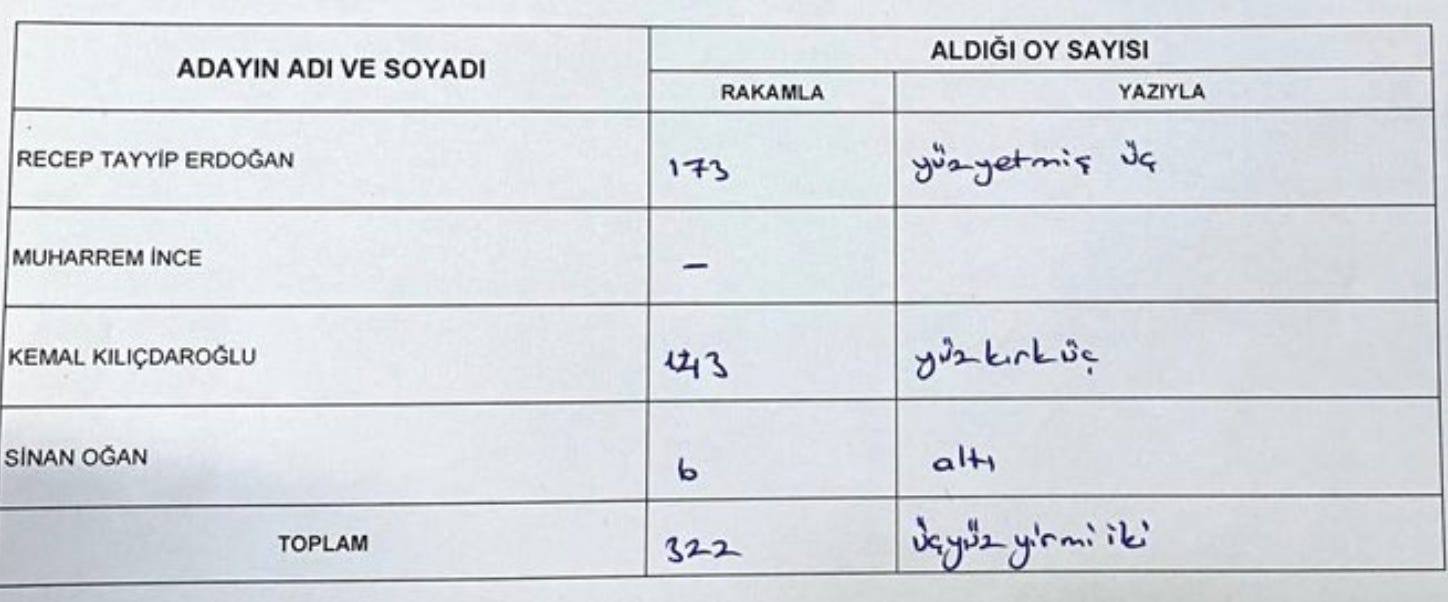 ADAYIN ADI VE SOYADI
ALDIĞI OY SAYISI
RAKAMLA
YAZIYLA
RECEP TAYYİP ERDOĞAN 173 yüzyetmiş üç
MUHARREM İNCE –
KEMAL KILIÇDAROĞLU 143 yüzkırküç
SİNAN OĞAN 6 altı
TOPLAM 322 üçyüz yirmi iki